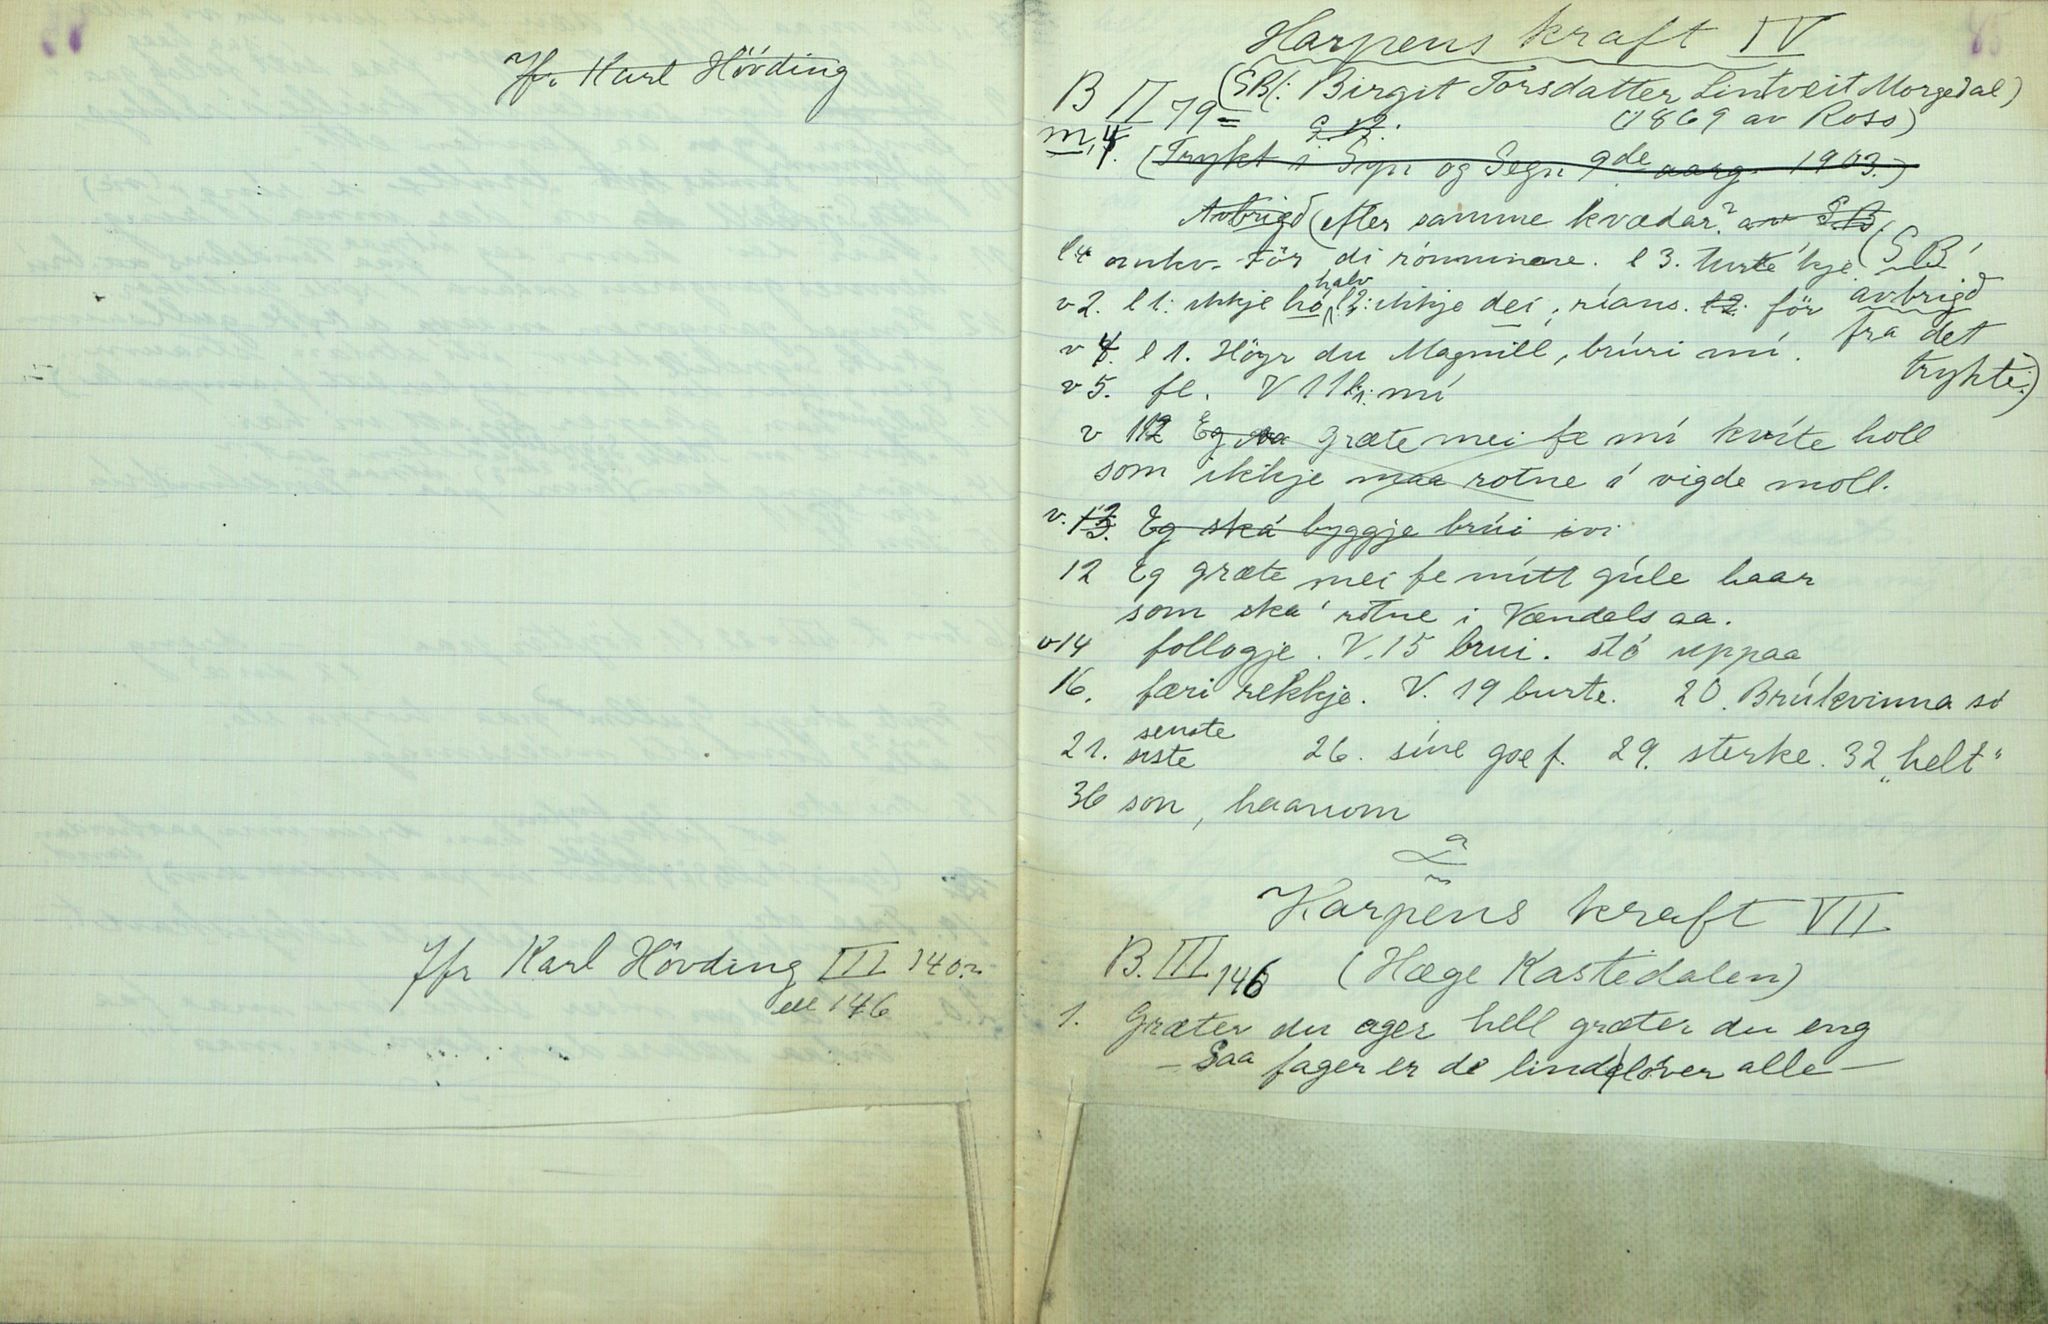 Jfr Karl Hövding
Jfr Karl Hövding III 140
ell 146
85
Harpens kraft IV
B II 79 = (SB: Birgit Torsdatter Lintveit Morgedal)
(1869 av Ross)
(Trykt i Syn og Segn 9de aarg. 1903.)
Avbrigd (etter samme kvædar? av S.B.
l 4 omkv. för di rónninne. l 3. turte 'kje. (S B'
v 2. l 1: ikkje hó, halv l 2: ikkje dei, ríans. för avbrigd
v 4. l 1. Höyr du Magnill, brúri mí. fra det
v 5. fe. V 11 l 1. mí trykte.)
v 12 Eg græte mei fe mi kvíte holl
som ikkje maa rotne i vigde moll.
v. 13. Eg ská byggje brúi ivi
12 Eg græte mei fe mitt gúle haar
som ska' rotne i Vændels aa.
v 14 follogje. V. 15 brui. stó uppaa
16. færi rekkje. V. 19 burte. 20. Brúkvinna só
21. senste siste 26. síne goe f. 29. sterke. 32 „helt“
36 son, haanom
Harpens kraft VII
B. III 146 (Hæge Kastedalen)
1. Græter du ager hell græter du eng
— Saa fager er de lindelöver alle —